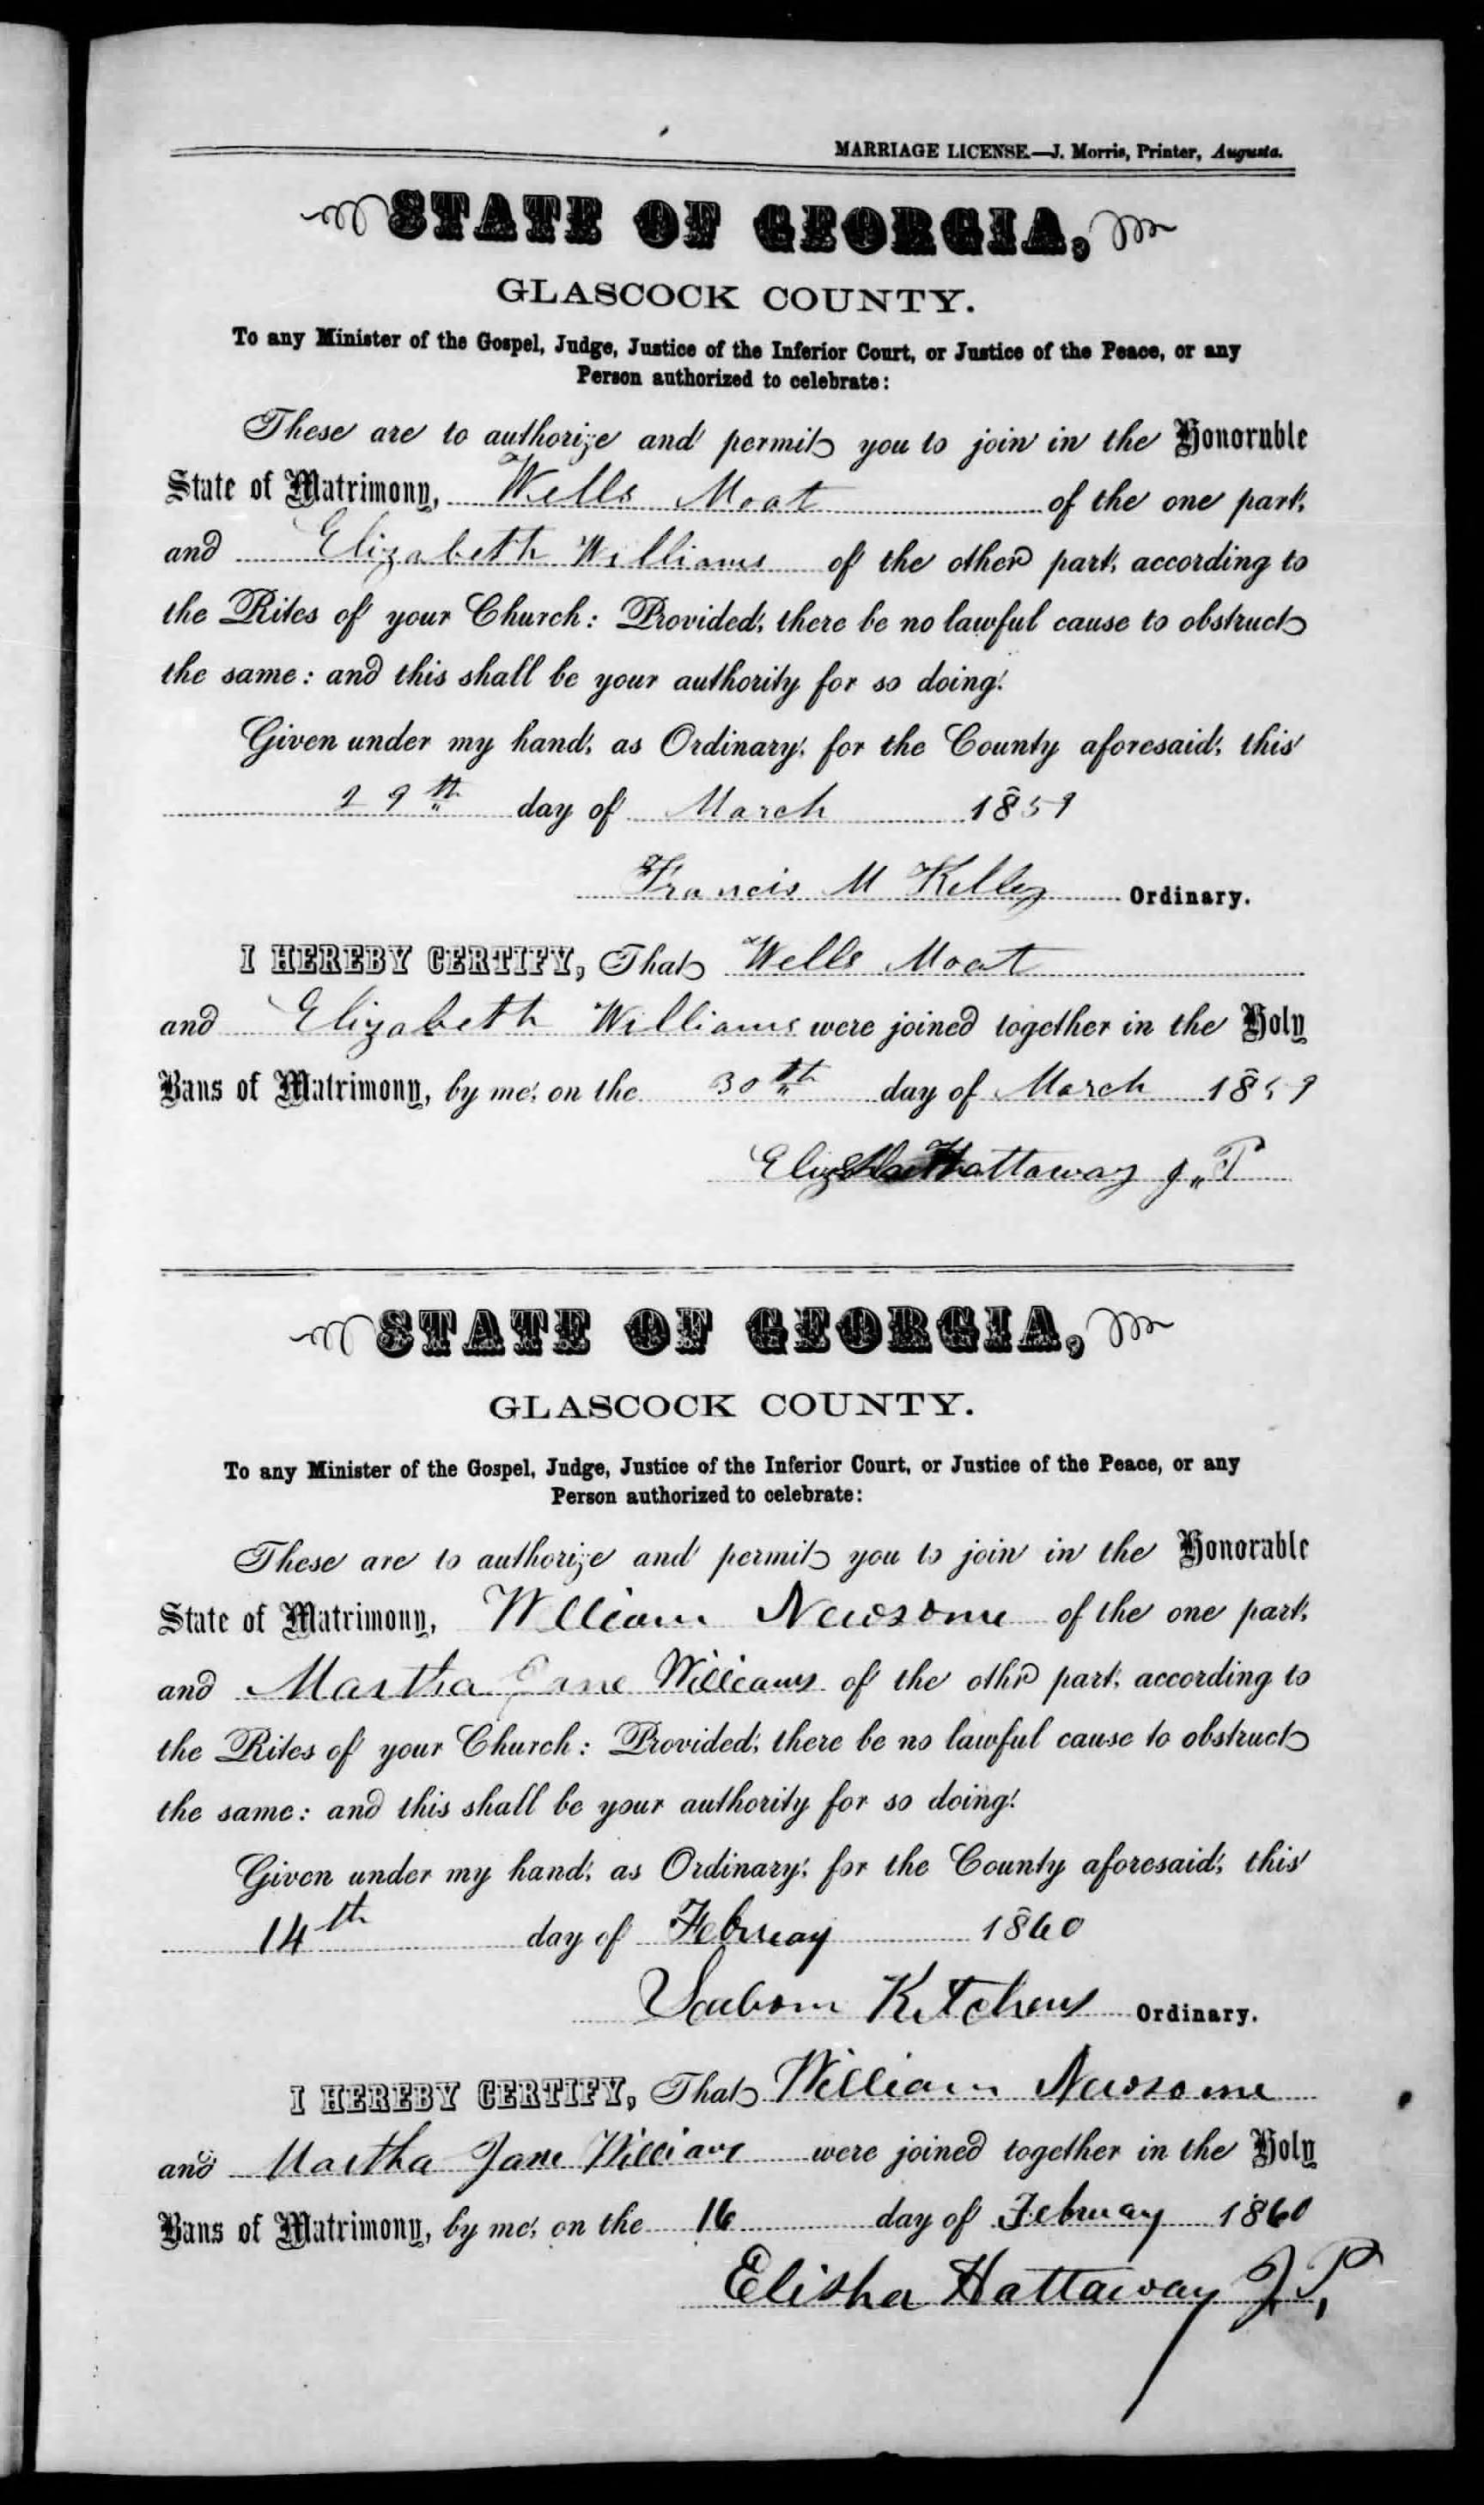 MARRIAGE LICENSE.—J. Morris, Printer, Augusta.
STATE OF GEORGIA,
GLASCOCK COUNTY.
To any Minister of the Gospel, Judge, Justice of the Inferior Court, or Justice of the Peace, or any
Person authorized to celebrate:
These are to authorize and permit you to join in the Honoruble
State of Matrimony, Wells Moat of the one part,
and Elizabeth Williams of the other part, according to
the Rites of your Church: Provided, there be no lawful cause to obstruct
the same: and this shall be your authority for so doing.
Given under my hand, as Ordinary, for the County aforesaid, this
29th day of March 1859
Francis M Kelley Ordinary.
I HEREBY CERTIFY, That Wells Moat
and Elizabeth Williams were joined together in the Holy
Bans of Matrimony, by me, on the 30th day of March 1859
Hattaway J,, P
STATE OF GEORGIA,
GLASCOCK COUNTY.
To any Minister of the Gospel, Judge, Justice of the Inferior Court, or Justice of the Peace, or any
Person authorized to celebrate:
These are to authorize and permit you to join in the Honorable
State of Matrimony, William Newsome of the one part,
and Martha Jane Williams of the othr part, according to
the Rites of your Church: Provided, there be no lawful cause to obstruct
the same: and this shall be your authority for so doing.
Given under my hand, as Ordinary, for the County aforesaid, this
14th day of Februay 1860
Seaborn Kitchens Ordinary.
I HEREBY CERTIFY, That William Newsome
and Martha Jane Williams were joined together in the Holy
Bans of Matrimony, by me, on the 16 day of Februay 1860
Elisha Hattaway J. P,